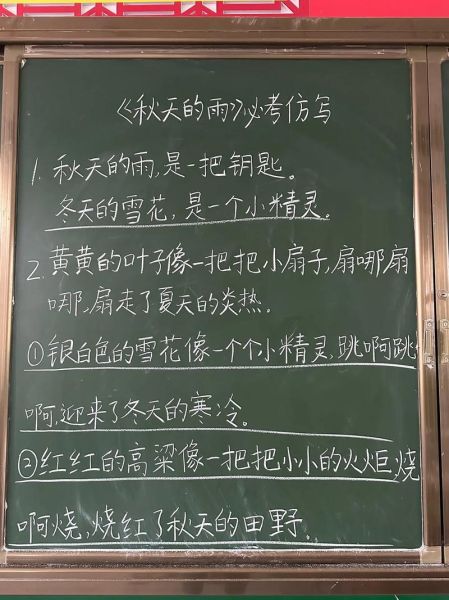 《秋天的雨》必考仿写
1. 秋天的雨,是一把钥匙。
冬天的雪花,是一个小精灵。
2. 黄黄的叶子像一把把小扇子,扇哪扇
哪,扇走了夏天的炎热。
①银白色的雪花像一个个小精灵,跳啊跳
啊,迎来了冬天的寒冷。
②红红的高梁像一把把小小的火炬,烧
啊烧,烧红了秋天的田野。